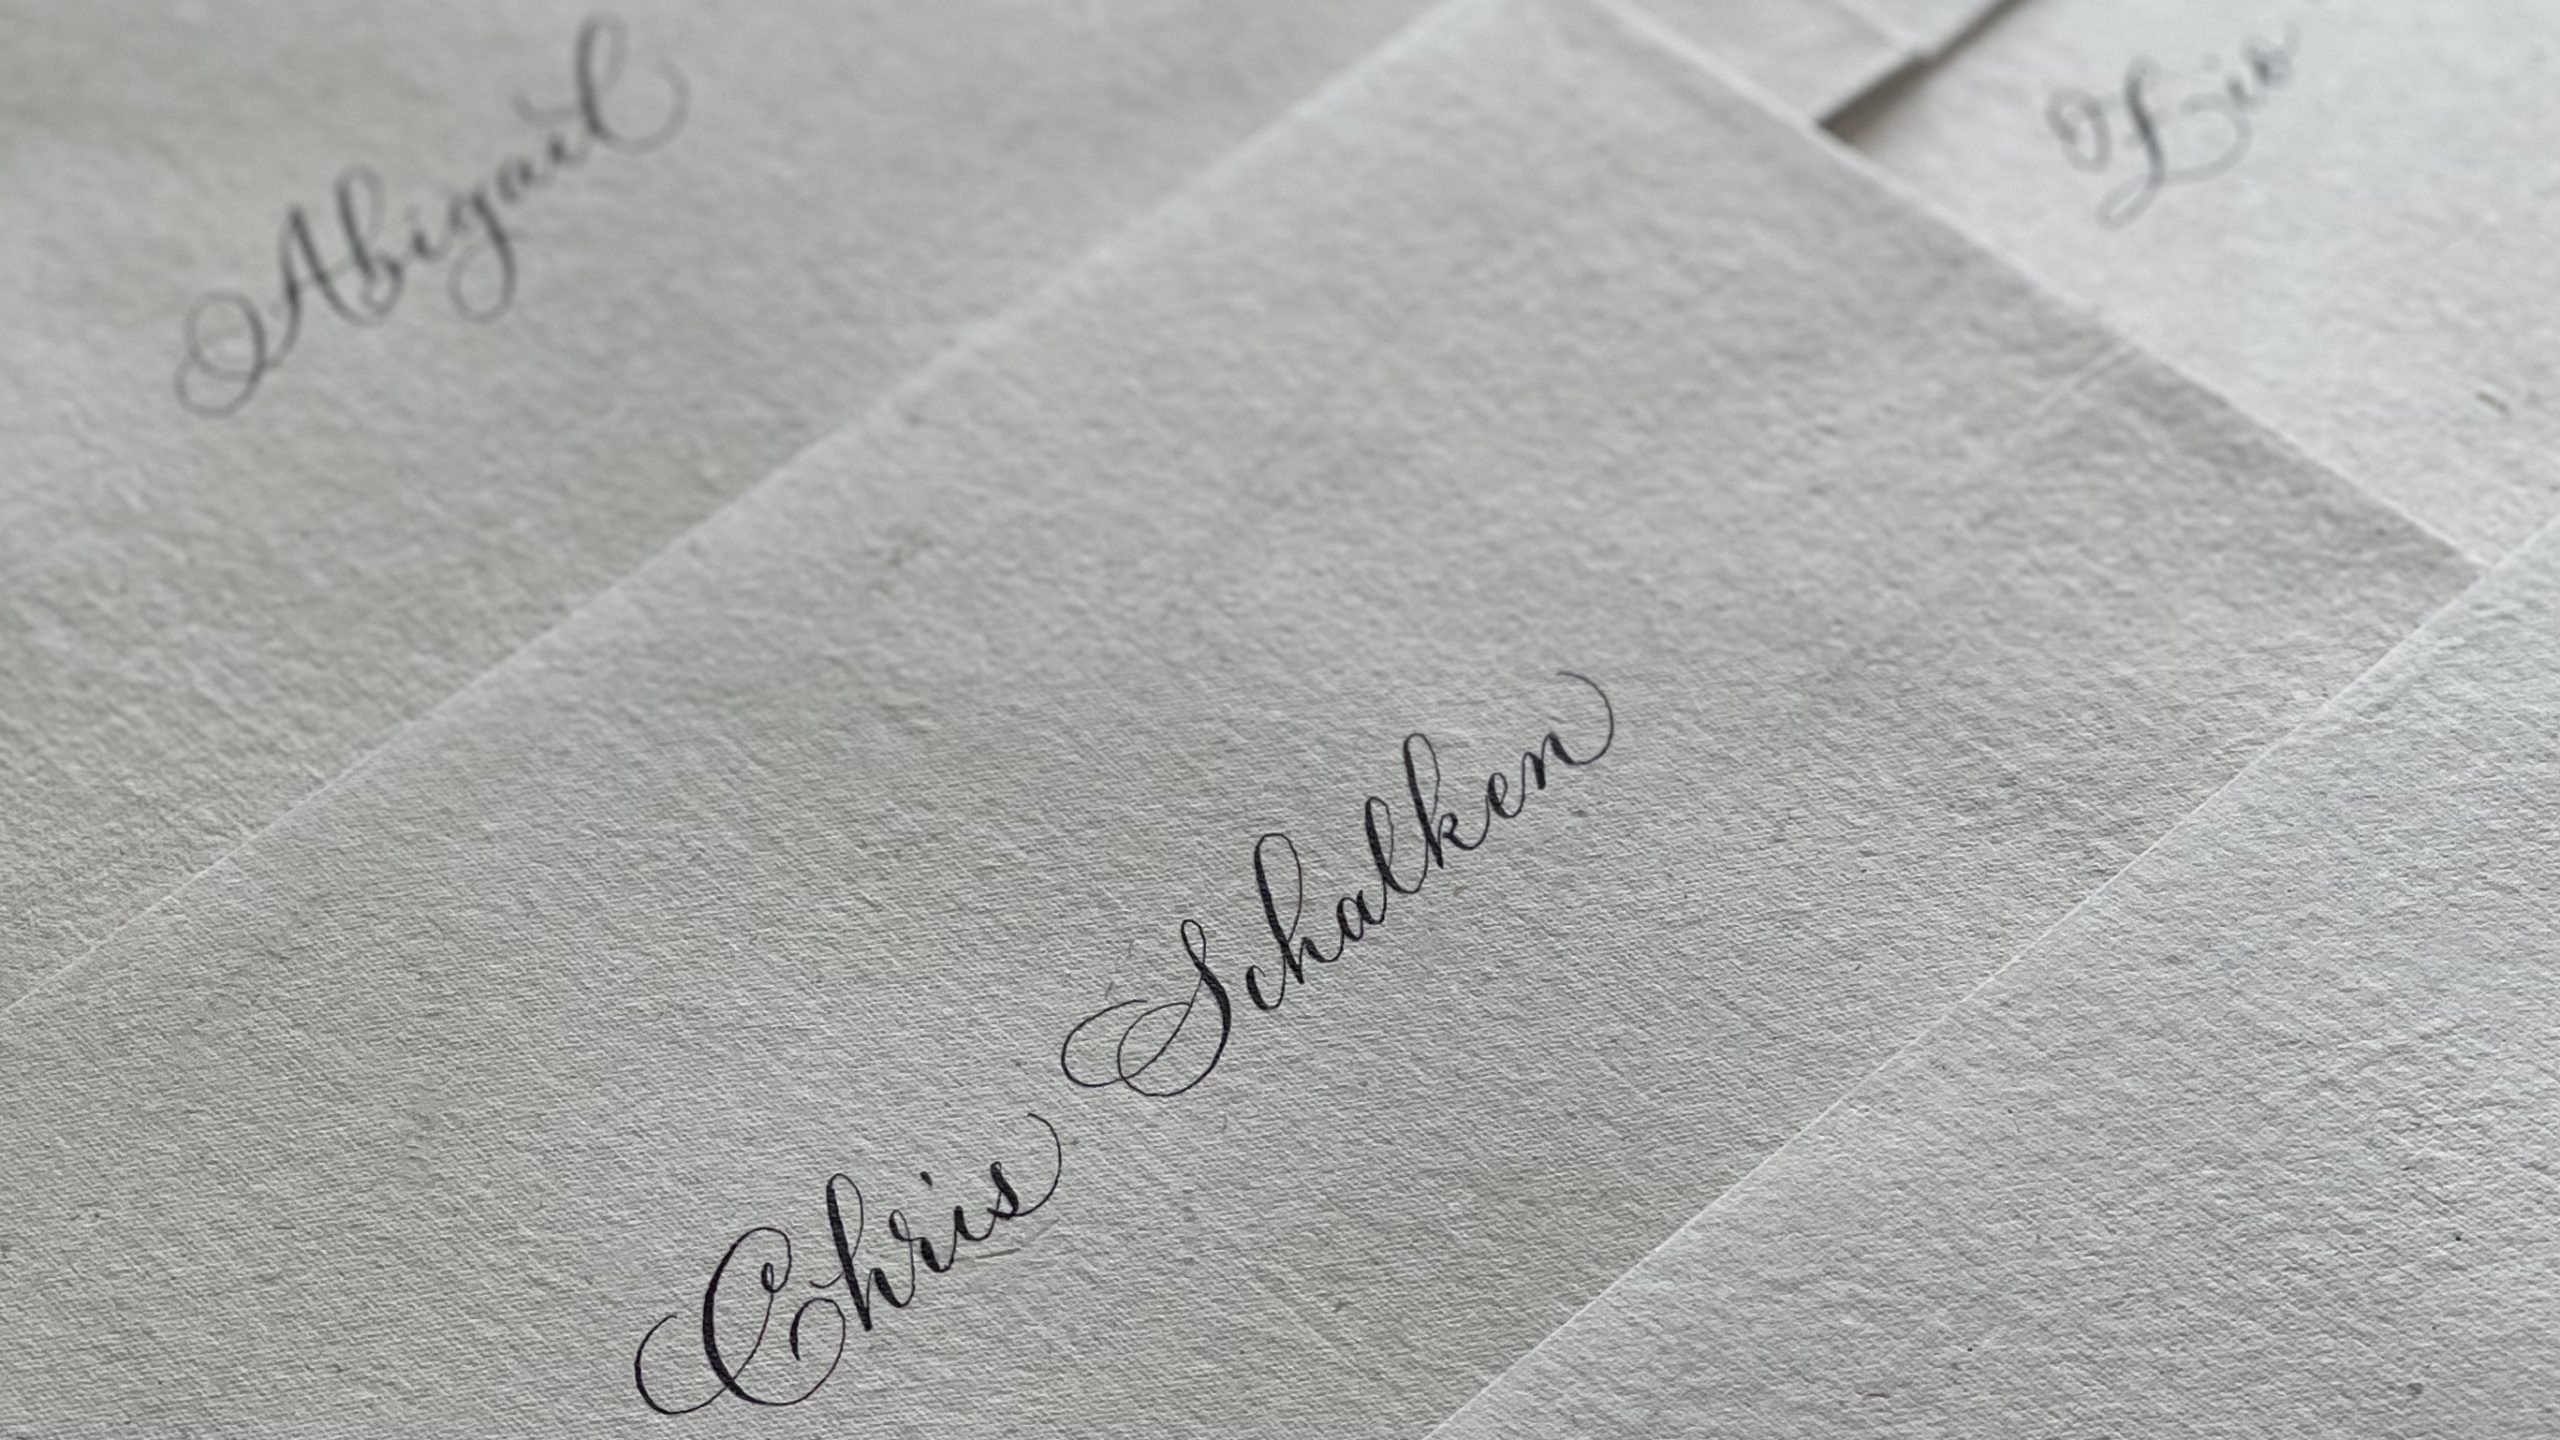 Abigail
Chris Schalken